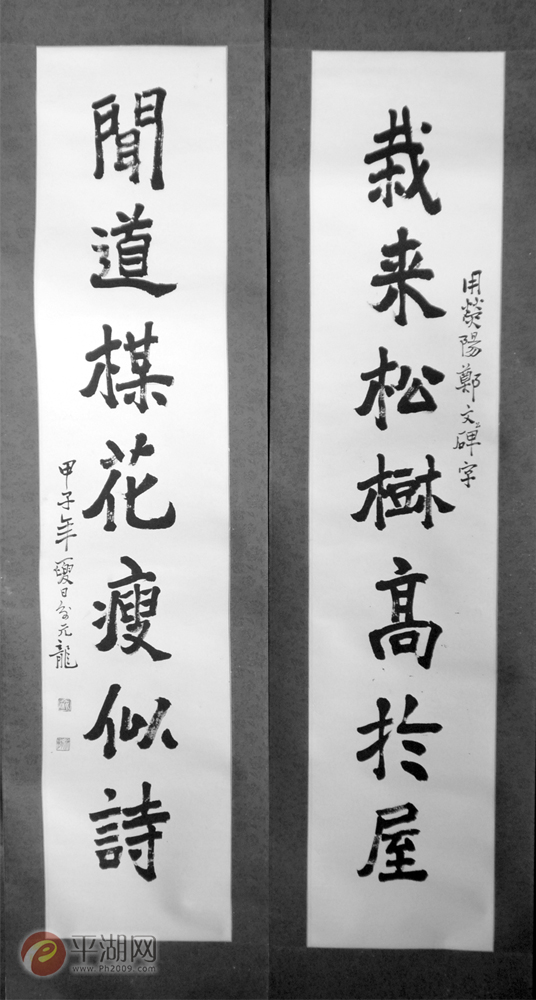 用熒陽鄭文碑字
栽来松樹髙扵屋
聞道楳花瘦似詩
甲子年夏日元龍
平湖网
www.Ph2009.com